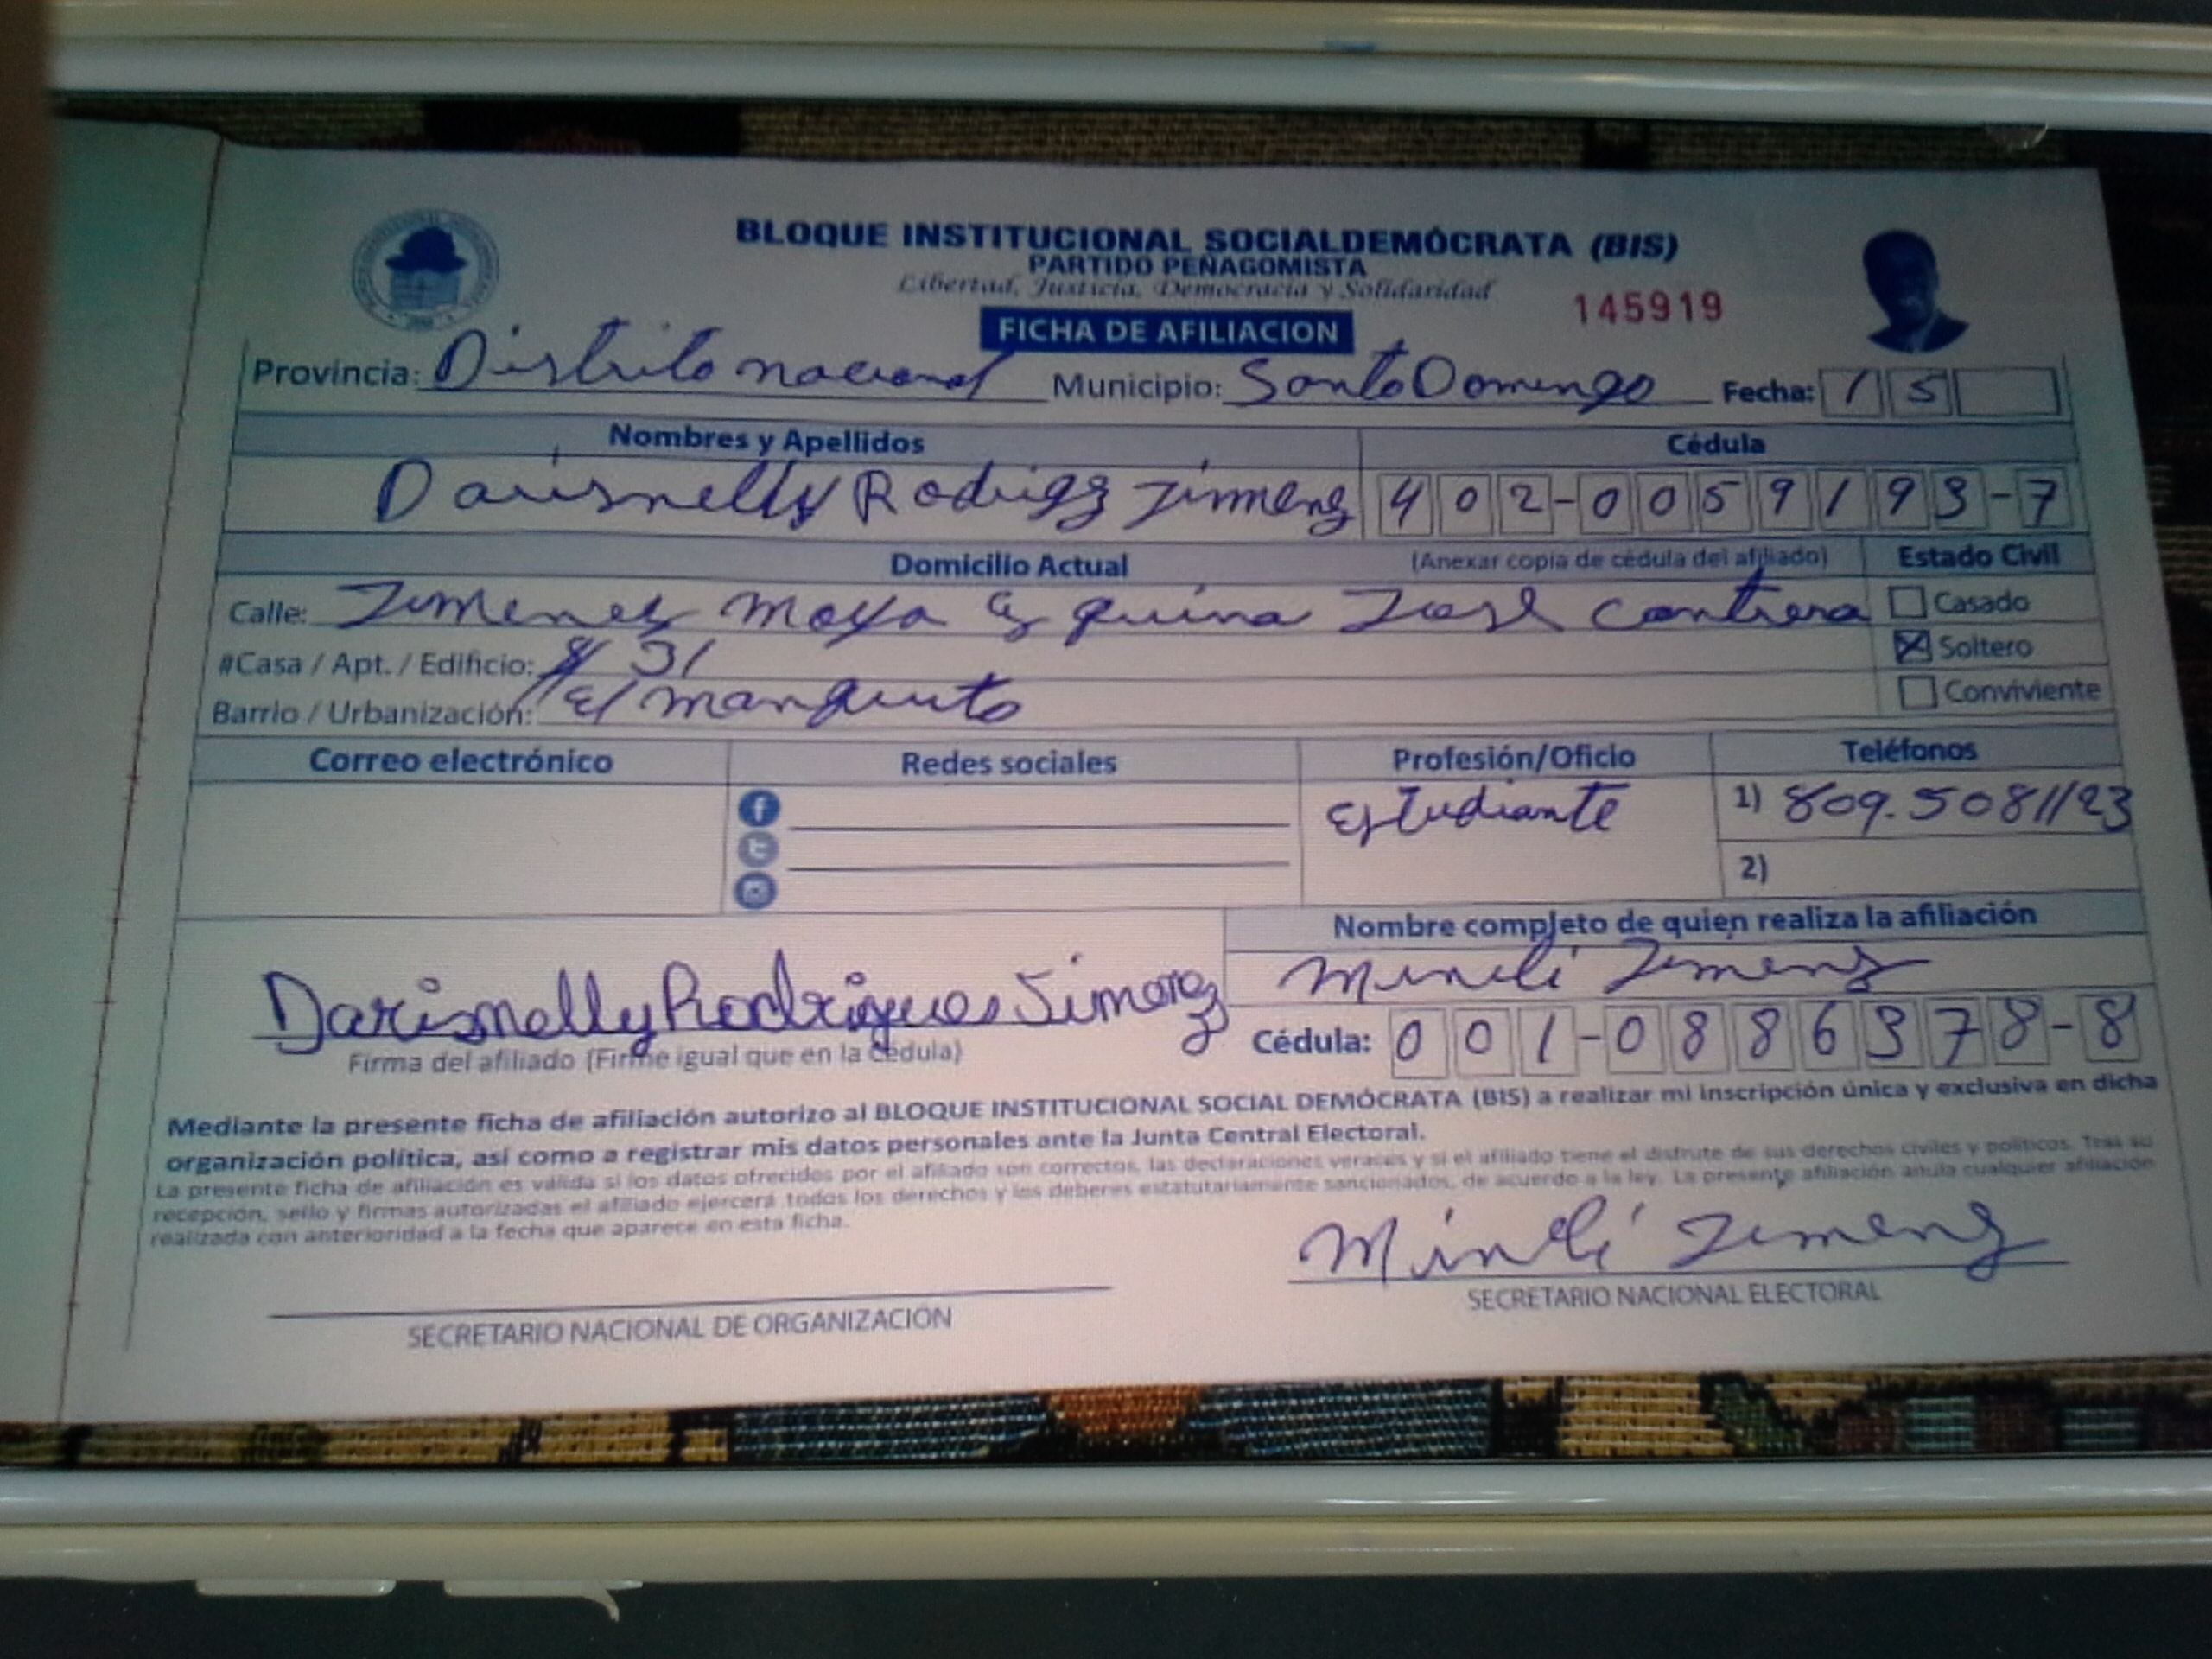 BLOQUE INSTITUCIONAL SOCIALDEMÓCRATA (BIS)
PARTIDO PEÑAGOMISTA
Libertad, Justicia, Democracia y Solidaridad
145919
FICHA DE AFILIACION
Provincia: Distrito nacional Municipio: Santo Domingo Fecha: 1 5
Nombres y Apellidos Cédula
Darisnelly Rodrigz Jimenz 402-0059193-7
Domicilio Actual (Anexar copia de cédula del afiliado) Estado Civil
Calle: Jimenez Moya Esquina José Contrera Casado
#Casa / Apt. / Edificio: 31 Soltero
Barrio / Urbanización: El manguito Conviviente
Correo electrónico Redes sociales Profesión/Oficio Teléfonos
Estudiante 1) 809.5081123
2)
Nombre completo de quien realiza la afiliación
Jimenz
Darismelly Rodrigues Jimenez
Cédula: 001-0886378-8
Firma del afiliado (Firme igual que en la Cédula)
Mediante la presente ficha de afiliación autorizo al BLOQUE INSTITUCIONAL SOCIAL DEMÓCRATA (BIS) a realizar mi inscripción única y exclusiva en dicha
organización política, así como a registrar mis datos personales ante la Junta Central Electoral.
La presente ficha de afiliación es válida si los datos ofrecidos por el afiliado son correctos, las declaraciones veraces y si el afiliado tiene el disfrute de sus derechos civiles y políticos. Tras su
recepción, sello y firmas autorizadas el afiliado ejercerá todos los derechos y los deberes estatutariamente sancionados, de acuerdo a la ley. La presente afiliación anula cualquier afiliación
realizada con anterioridad a la fecha que aparece en esta ficha.
Jimenz
SECRETARIO NACIONAL DE ORGANIZACIÓN SECRETARIO NACIONAL ELECTORAL